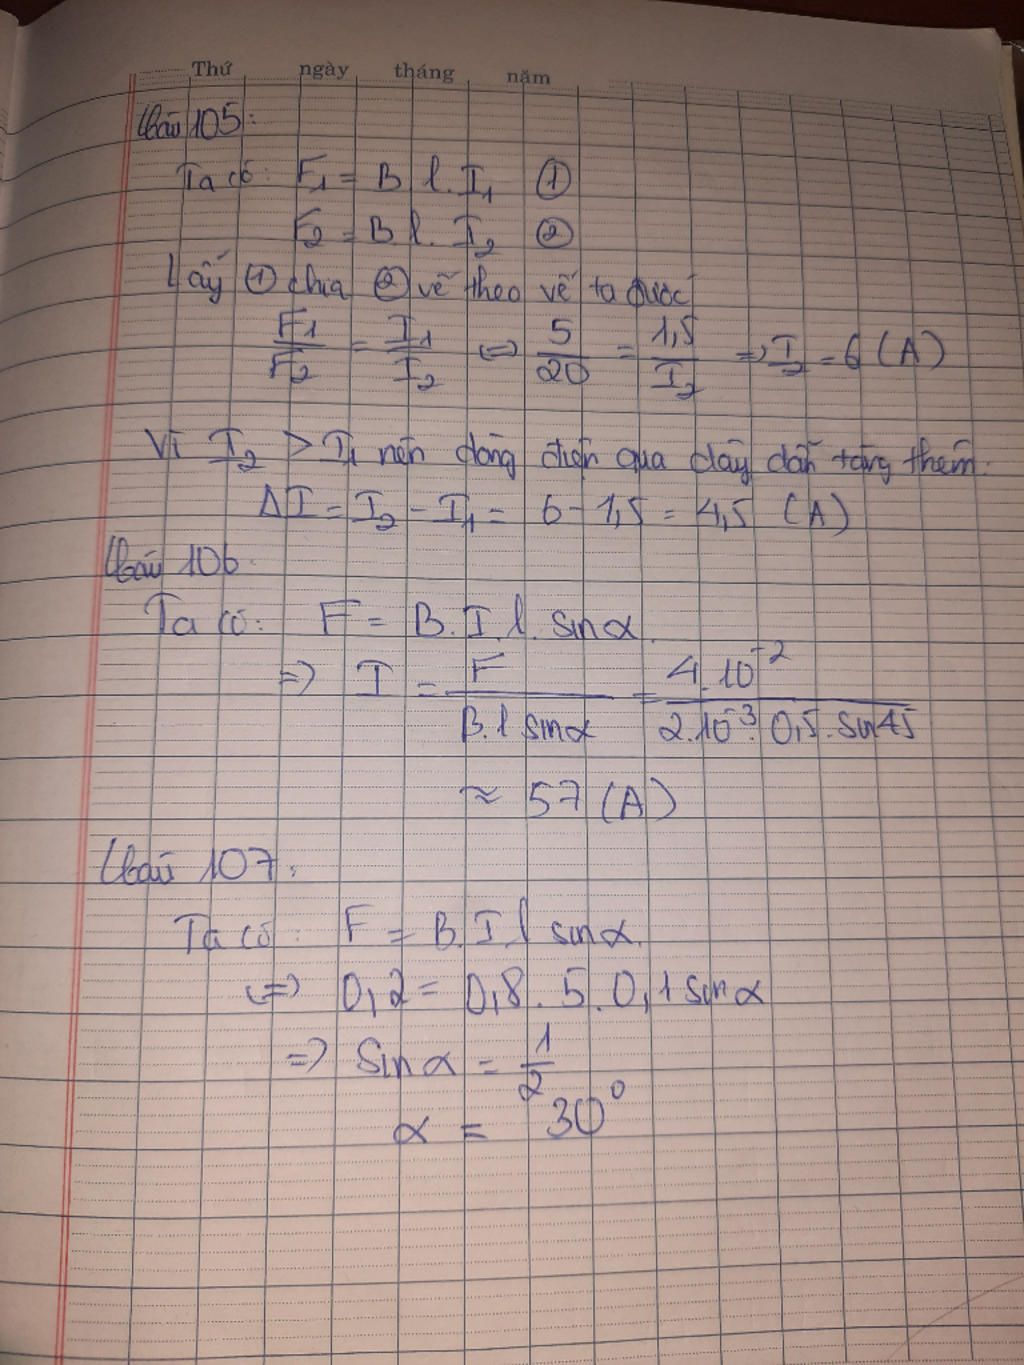 Thứ ngày tháng năm
Câu 105:
Ta có: F₁ = B l. I₁ ①
F₂ = B l. I₂ ②
Lấy ① chia ② vế theo vế ta được
F₁/F₂ = I₁/I₂ ⇔ 5/20 = 1,5/I₂ ⇒ I₂ = 6 (A)
Vì I₂ > I₁ nên dòng điện qua dây dẫn tăng thêm.
ΔI = I₂ - I₁ = 6 - 1,5 = 4,5 (A)
Câu 106.
Ta có: F = B. I. l. sinα.
⇒ I = F/(B.l sinα) = 4.10⁻²/(2.10⁻³. 0,5. sin45)
≈ 57 (A)
Câu 107:
Ta có: F = B. I. l sinα.
⇔ 0,2 = 0,8. 5. 0,1 sinα
⇒ sinα = 1/2
α = 30°